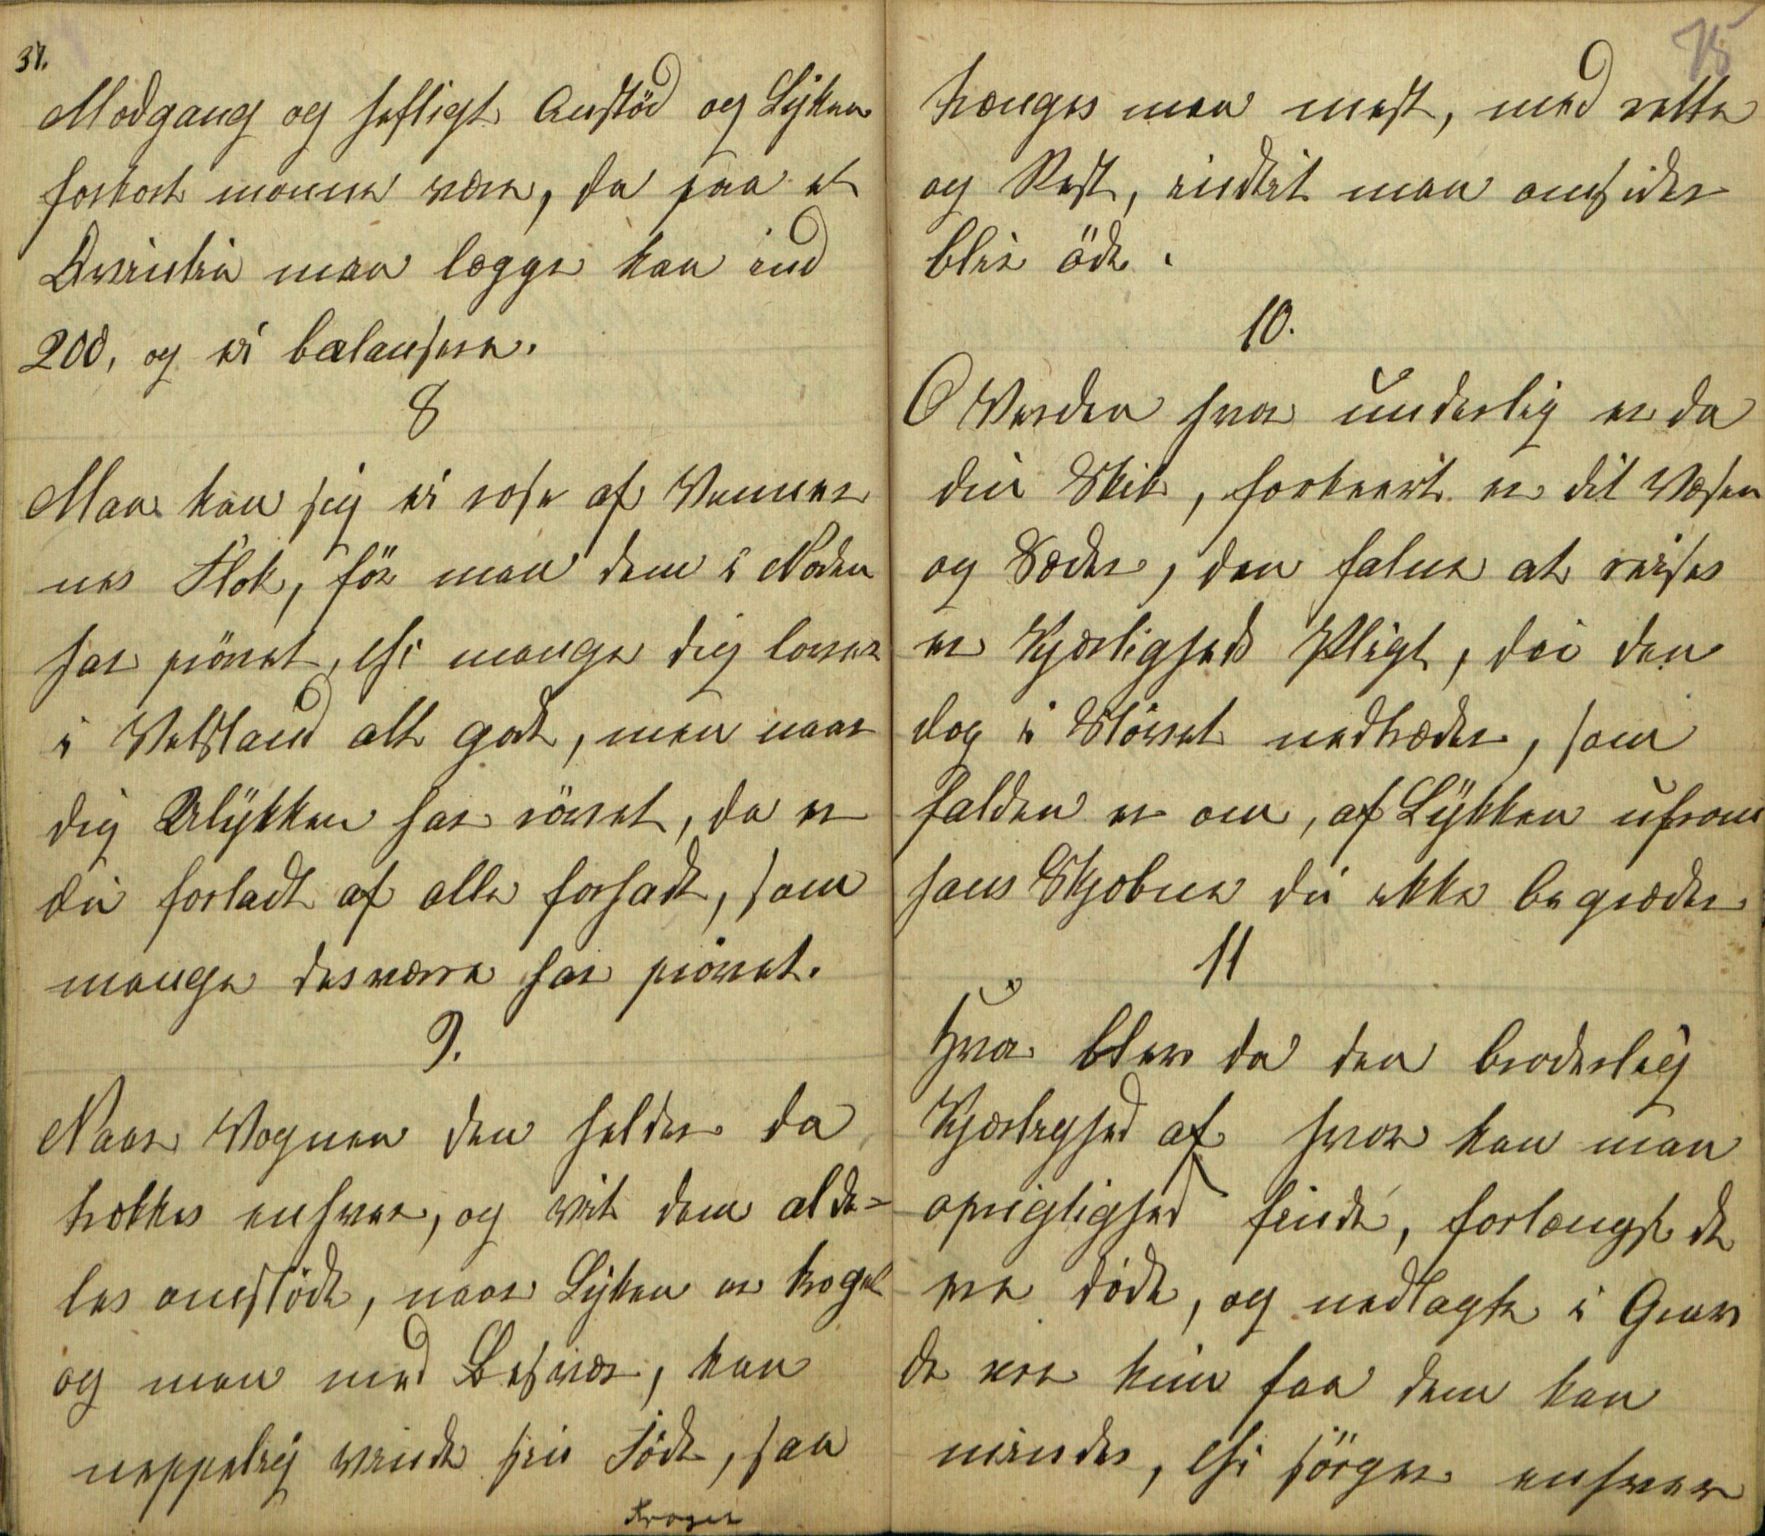 37.
Modgang og heftigt Anstöd og Lykken
forkort monne være, da paa et
Qvintin man lægge kan ind
200, og ei balansere.
8
Man kan sig ei rose af Venner
nes Flok, för man dem i Noden
har prövet, thi mange dig lover
i Velstand alt godt, men naar
dig Ulykken har rövet, da er
du forladt af alle forhadt, som
mange desværre har prövet.
9.
Naar Vognen den helder da
trækkes enhver, og vil dem alde=
les omstödt, naar Lyken er kroget
og man med Besvær, kan
neppelig vinde sin Föde, saa
Kroget
75
trænges man mest, med rette
og Rest, indtil man omsider
blir öde.
10.
O Verden hvor underlig er da
din Skik, forkeert er dit Væsen
og Sæder, den falne at reises
er Kjærligheds Pligt, du den
dog i Stövet nedtræder, som
falden er om, af Lykken ufrom
hans Skjæbne du ikke begræder
11
Hvor blev da den broderlig
Kjærlighed af hvor kan man
oprigtighed finde, forlængst de
ere döde, og nedlagte i Grav
de ere kun faa dem kan
mindes, thi sörger enhver